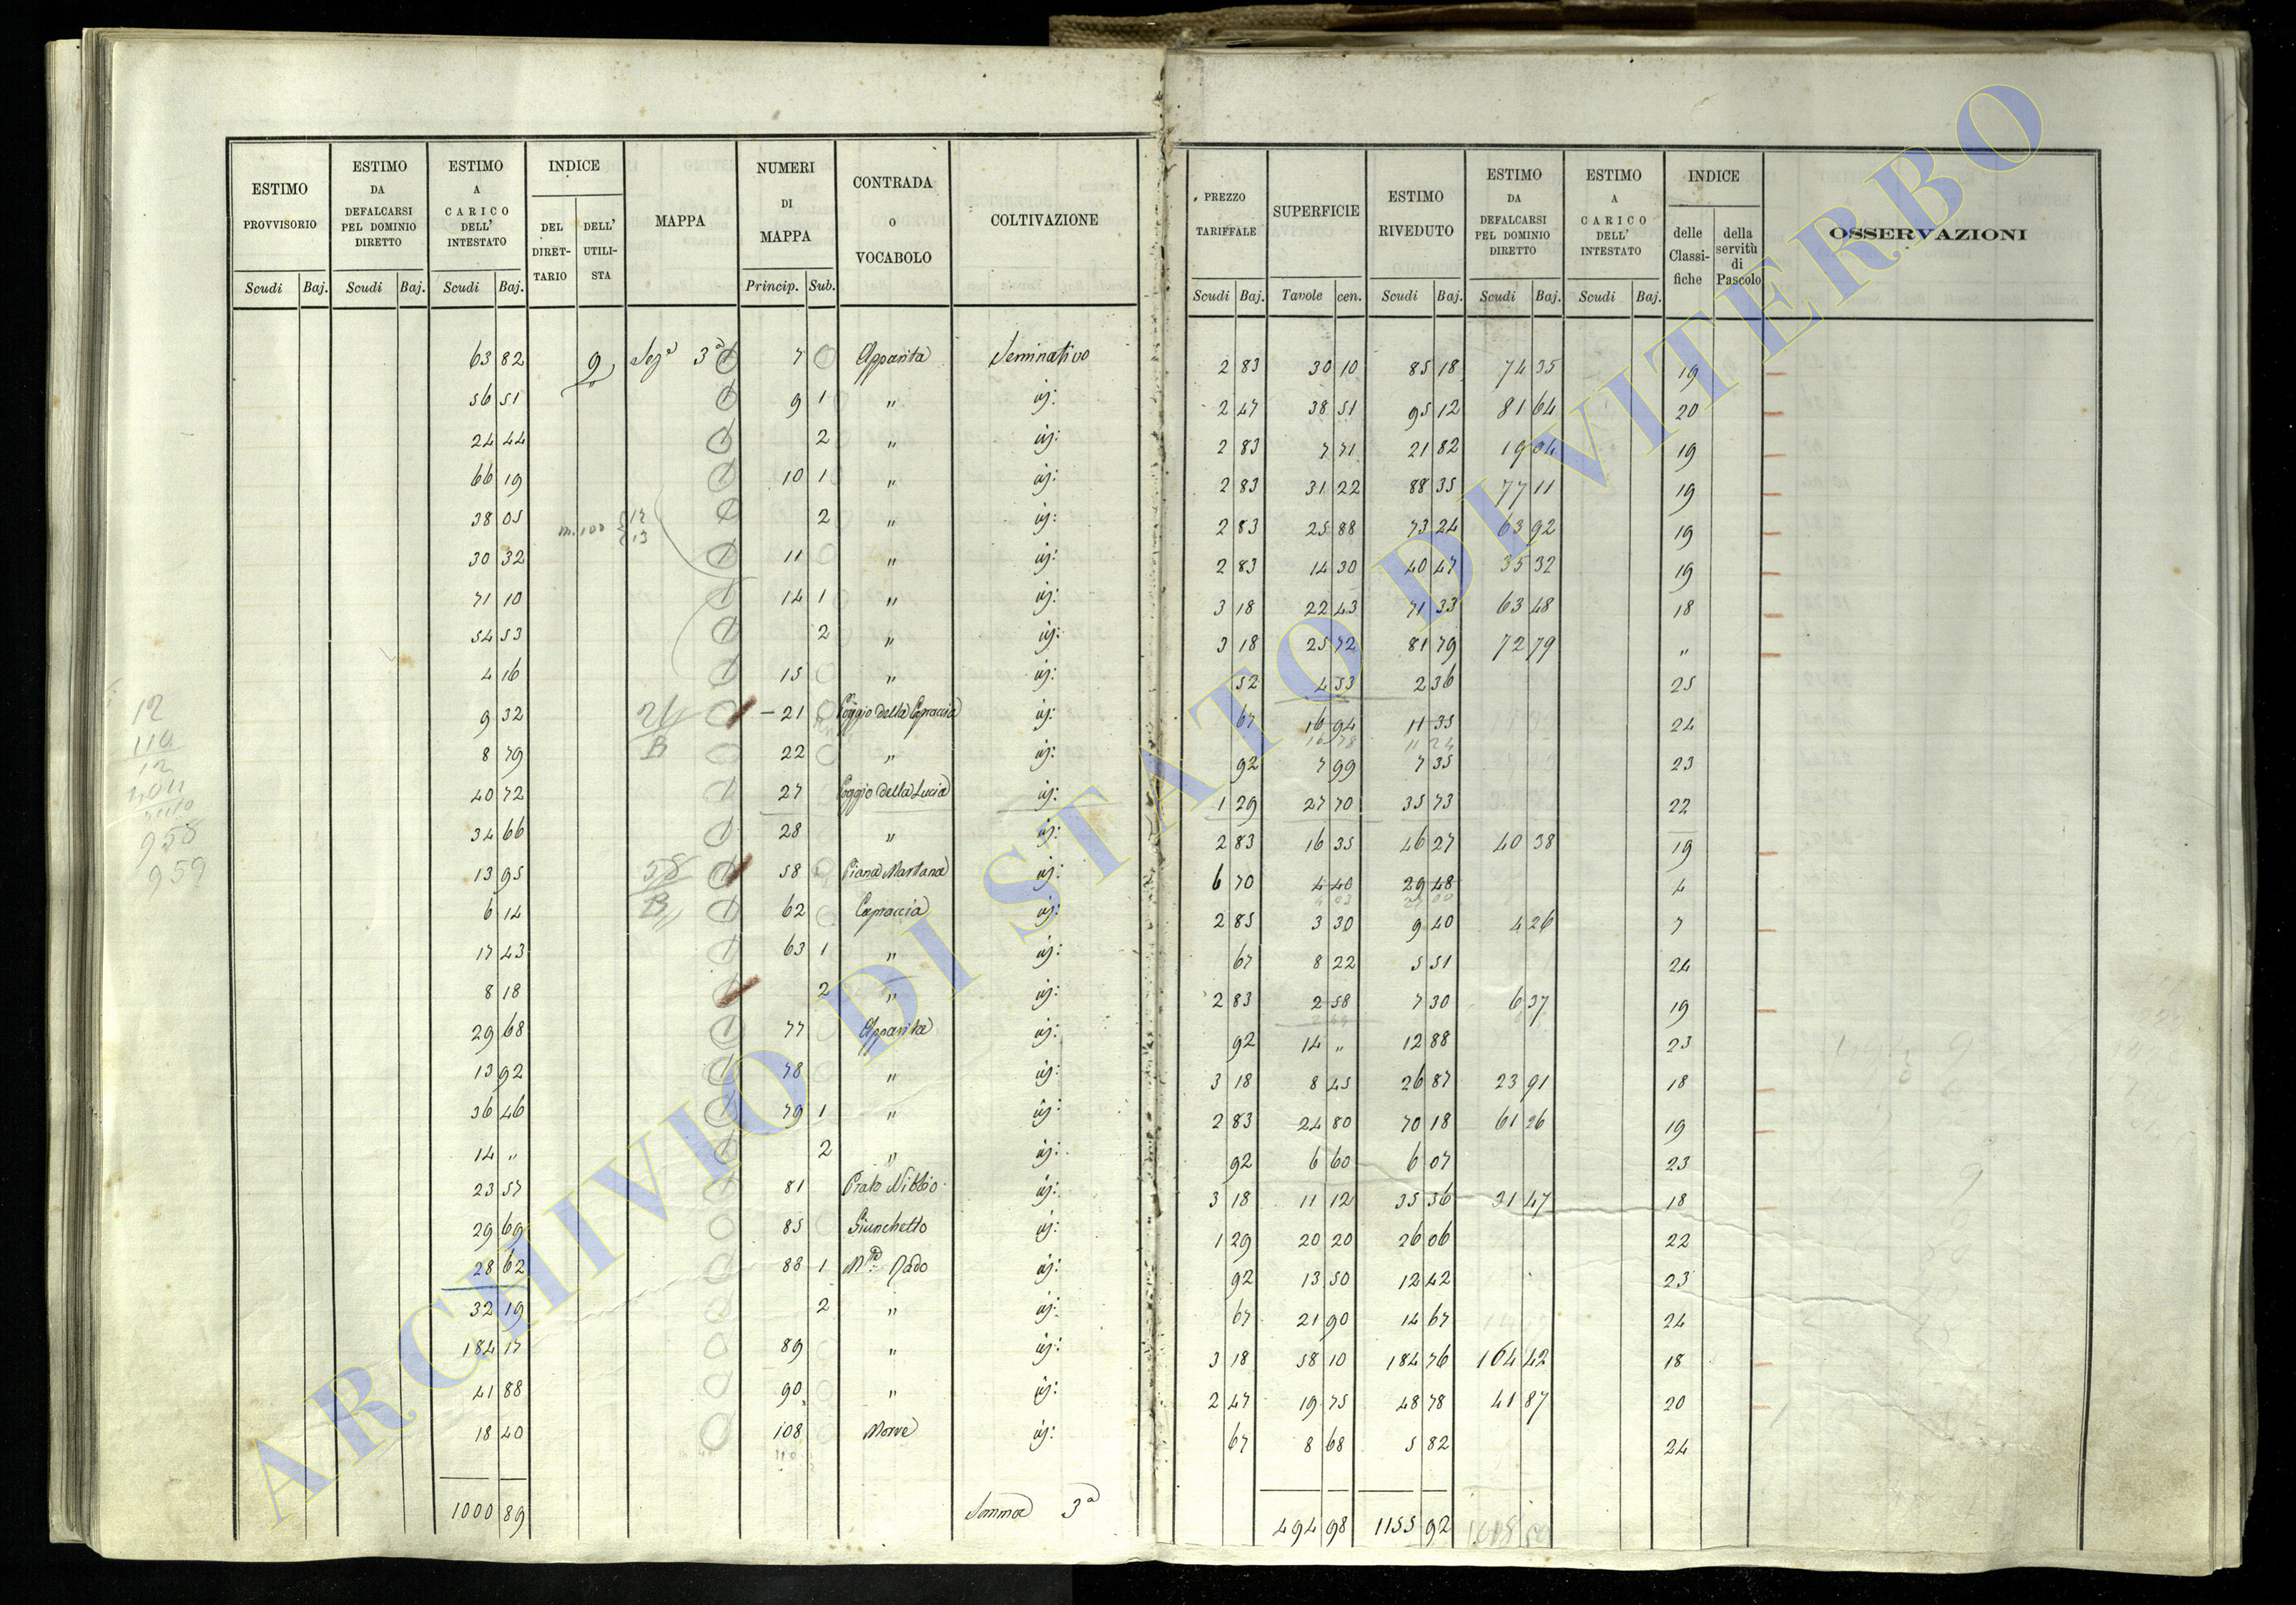 ESTIMO PROVVISORIO Scudi Baj.
ESTIMO DA DEFALCARSI PEL DOMINIO DIRETTO Scudi Baj.
ESTIMO A CARICO DELL' INTESTATO Scudi Baj.
INDICE DEL DIRETTARIO DELL' UTILISTA
MAPPA
NUMERI DI MAPPA Princip. Sub.
CONTRADA o VOCABOLO
COLTIVAZIONE
PREZZO TARIFFALE Scudi Baj.
SUPERFICIE Tavole cen.
ESTIMO RIVEDUTO Scudi Baj.
ESTIMO DA DEFALCARSI PEL DOMINIO DIRETTO Scudi Baj.
ESTIMO A CARICO DELL' INTESTATO Scudi Baj.
INDICE delle Classifiche della servitù di Pascolo
OSSERVAZIONI
63 82 2 Sez.e 3a 7 Apparita Seminativo 2 83 30 10 85 18 74 35 19
56 51 9 1 " id: 2 47 38 51 95 12 81 64 20
24 44 2 " id: 2 83 7 71 21 82 19 04 19
66 19 10 1 " id: 2 83 31 22 88 35 77 11 19
38 05 2 " id: 2 83 25 88 73 24 63 92 19
30 32 11 " id: 2 83 14 30 40 47 35 32 19
71 10 14 1 " id: 3 18 22 43 71 33 63 48 18
54 53 2 " id: 3 18 25 72 81 79 72 79 "
4 16 15 " id: 52 4 53 2 36 25
9 32 21 Poggio della Capraccia id: 67 16 94 11 35 24
8 79 22 " id: 92 7 99 7 35 23
40 72 27 Poggio della Lucia id: 1 29 27 70 35 73 22
34 66 28 " id: 2 83 16 35 46 27 40 38 19
13 95 58 Piana Martana id: 6 70 4 40 29 48 4
6 14 62 Capraccia id: 2 85 3 30 9 40 4 26 7
17 43 63 1 " id: 67 8 22 5 51 24
8 18 2 " id: 2 83 2 58 7 30 6 37 19
29 68 77 Apparita id: 92 14 " 12 88 23
13 92 78 " id: 3 18 8 45 26 87 23 91 18
36 46 79 1 " id: 2 83 24 80 70 18 61 26 19
14 " 2 " id: 92 6 60 6 07 23
23 57 81 Prato Nibbio id: 3 18 11 12 35 36 31 47 18
29 69 85 Giunchetto id: 1 29 20 20 26 06 22
28 62 88 1 M.te Rado id: 92 13 50 12 42 23
32 19 2 " id: 67 21 90 14 67 24
184 17 89 " id: 3 18 58 10 184 76 164 42 18
41 88 90 " id: 2 47 19 75 48 78 41 87 20
18 40 108 Morre id: 67 8 68 5 82 24
1000 89 Somma 3a 494 98 1155 92
12
110
12
958
959
21
B
58
B
ARCHIVIO DI STATO DI VITERBO